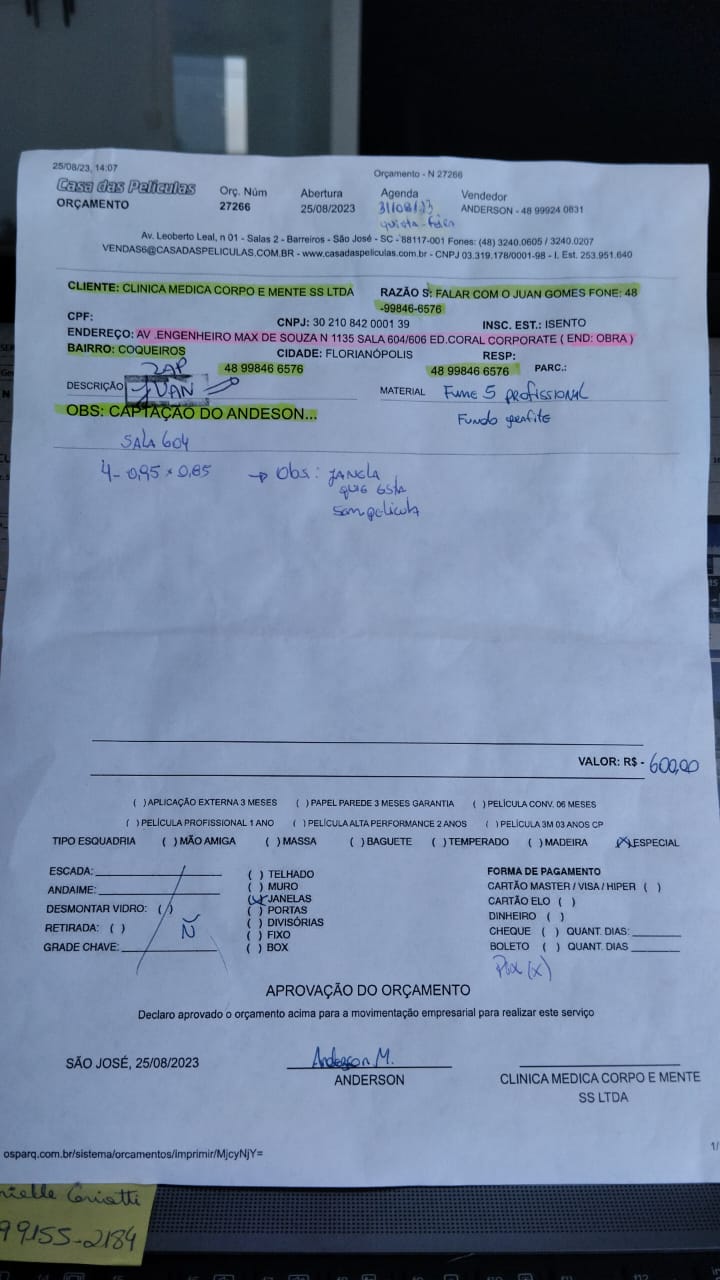 25/08/23, 14:07
Orçamento - N 27266
Casa das Películas
ORÇAMENTO
Orç. Núm
27266
Abertura
25/08/2023
Agenda
31/08/23
quinta-feira
Vendedor
ANDERSON - 48 99924 0631
Av. Leoberto Leal, n 01 - Salas 2 - Barreiros - São José - SC - 88117-001 Fones: (48) 3240.0605 / 3240.0207
VENDAS6@CASADASPELICULAS.COM.BR - www.casadaspeliculas.com.br - CNPJ 03.319.178/0001-98 - I. Est. 253.951.640
CLIENTE: CLINICA MEDICA CORPO E MENTE SS LTDA
RAZÃO S: FALAR COM O JUAN GOMES FONE: 48
-99846-6576
CPF:
CNPJ: 30 210 842 0001 39
INSC. EST.: ISENTO
ENDEREÇO: AV .ENGENHEIRO MAX DE SOUZA N 1135 SALA 604/606 ED.CORAL CORPORATE ( END: OBRA )
BAIRRO: COQUEIROS
CIDADE: FLORIANÓPOLIS
RESP:
ZAP
48 99846 6576
48 99846 6576
PARC.:
DESCRIÇÃO
JUAN
MATERIAL
Fume 5 profissional
OBS: CAPTAÇÃO DO ANDESON...
Fundo grafite
SALA 604
4 - 0,95 x 0,85 → Obs: JANELA
que esta
sem pelicula
VALOR: R$ - 600,00
( )APLICAÇÃO EXTERNA 3 MESES ( ) PAPEL PAREDE 3 MESES GARANTIA ( )PELÍCULA CONV. 06 MESES
( )PELÍCULA PROFISSIONAL 1 ANO ( )PELÍCULA ALTA PERFORMANCE 2 ANOS ( )PELÍCULA 3M 03 ANOS CP
TIPO ESQUADRIA ( )MÃO AMIGA ( )MASSA ( )BAGUETE ( )TEMPERADO ( )MADEIRA (X)ESPECIAL
ESCADA:
ANDAIME:
DESMONTAR VIDRO: ( )
RETIRADA: ( )
GRADE CHAVE:
Ñ
( ) TELHADO
( ) MURO
(X) JANELAS
( ) PORTAS
( ) DIVISÓRIAS
( ) FIXO
( ) BOX
FORMA DE PAGAMENTO
CARTÃO MASTER / VISA / HIPER ( )
CARTÃO ELO ( )
DINHEIRO ( )
CHEQUE ( ) QUANT. DIAS:
BOLETO ( ) QUANT. DIAS
Pix (x)
APROVAÇÃO DO ORÇAMENTO
Declaro aprovado o orçamento acima para a movimentação empresarial para realizar este serviço
SÃO JOSÉ, 25/08/2023
Anderson M.
ANDERSON
CLINICA MEDICA CORPO E MENTE
SS LTDA
osparq.com.br/sistema/orcamentos/imprimir/MjcyNjY=
1/
99155-2184